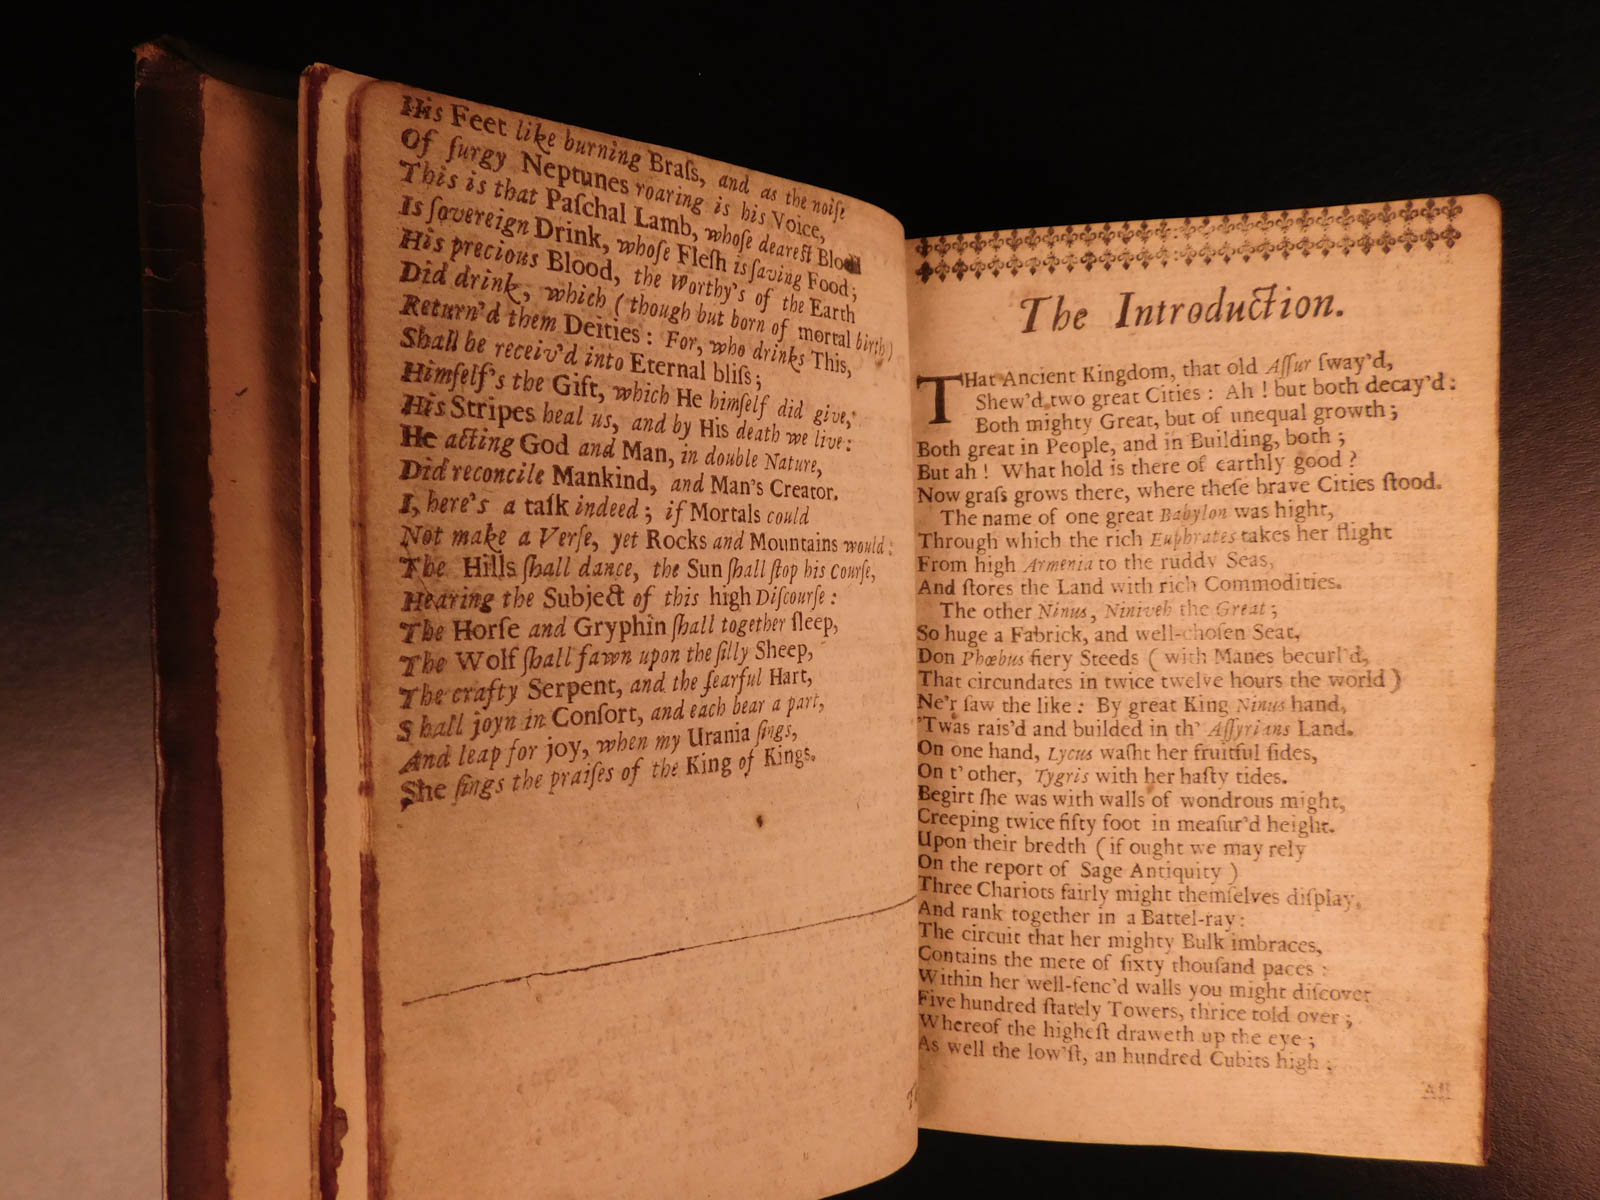 His Feet like burning Braſs, and as the noiſe
Of ſurgy Neptunes roaring is his Voice,
This is that Paſchal Lamb, whoſe dearest Blood
Is ſovereign Drink, whoſe Fleſh is ſaving Food;
His precious Blood, the Worthy's of the Earth
Did drink, which (though but born of mortal birth)
Return'd them Deities: For, who drinks This,
Shall be receiv'd into Eternal bliſs;
Himſelf's the Gift, which He himſelf did give;
His Stripes heal us, and by His death we live:
He acting God and Man, in double Nature,
Did reconcile Mankind, and Man's Creator.
I, here's a taſk indeed; if Mortals could
Not make a Verſe, yet Rocks and Mountains would:
The Hills ſhall dance, the Sun ſhall ſtop his Courſe,
Hearing the Subject of this high Diſcourſe:
The Horſe and Gryphin ſhall together ſleep,
The Wolf ſhall fawn upon the ſilly Sheep,
The crafty Serpent, and the fearful Hart,
Shall joyn in Conſort, and each bear a part,
And leap for joy, when my Urania ſings,
She ſings the praiſes of the King of Kings.
The Introduction.
THat Ancient Kingdom, that old Aſſur ſway'd,
Shew'd two great Cities: Ah! but both decay'd:
Both mighty Great, but of unequal growth;
Both great in People, and in Building, both;
But ah! What hold is there of earthly good?
Now graſs grows there, where theſe brave Cities ſtood.
The name of one great Babylon was hight,
Through which the rich Euphrates takes her flight
From high Armenia to the ruddy Seas,
And ſtores the Land with rich Commodities.
The other Ninus, Niniveh the Great;
So huge a Fabrick, and well-choſen Seat,
Don Phœbus fiery Steeds (with Manes becurl'd,
That circundates in twice twelve hours the world)
Ne'r ſaw the like: By great King Ninus hand,
'Twas rais'd and builded in th' Aſſyrians Land.
On one hand, Lycus waſht her fruitful ſides,
On t' other, Tygris with her haſty tides.
Begirt ſhe was with walls of wondrous might,
Creeping twice fifty foot in meaſur'd height.
Upon their bredth (if ought we may rely
On the report of Sage Antiquity)
Three Chariots fairly might themſelves diſplay,
And rank together in a Battel-ray:
The circuit that her mighty Bulk imbraces,
Contains the mete of ſixty thouſand paces:
Within her well-fenc'd walls you might diſcover
Five hundred ſtately Towers, thrice told over;
Whereof the higheſt draweth up the eye;
As well the low'ſt, an hundred Cubits high:
All